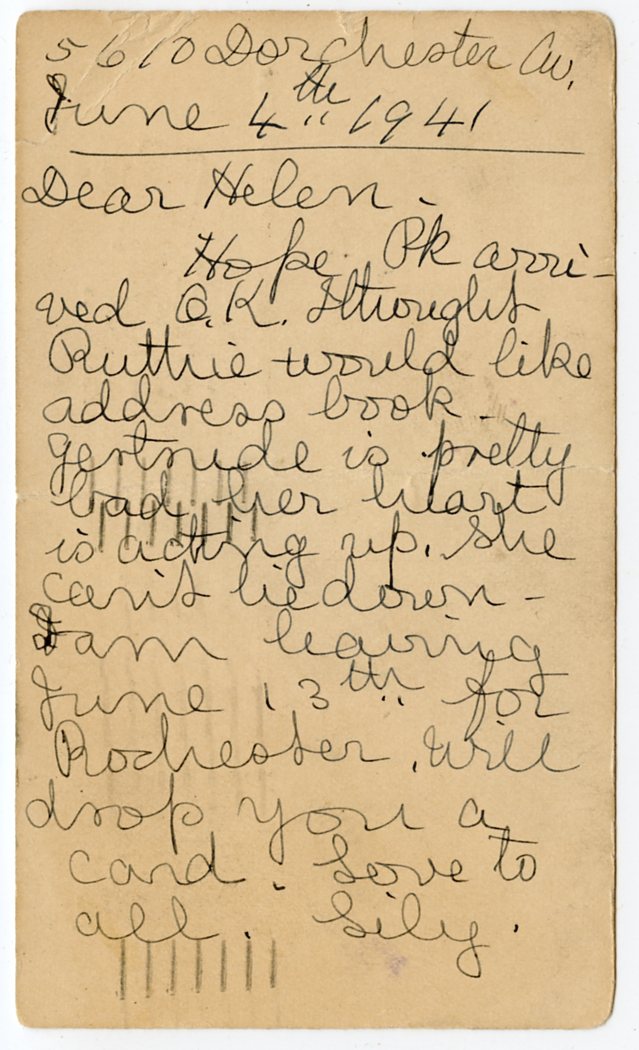 5610 Dorchester Av.
June 4th 1941
Dear Helen.
Hope Pk arri-
ved O.K. I thought
Ruthie would like
address book.
Gertrude is pretty
bad, her heart
is acting up. She
can't lie down -
I am leaving
June 13th for
Rochester. Will
drop you a
card. Love to
all. Lily.